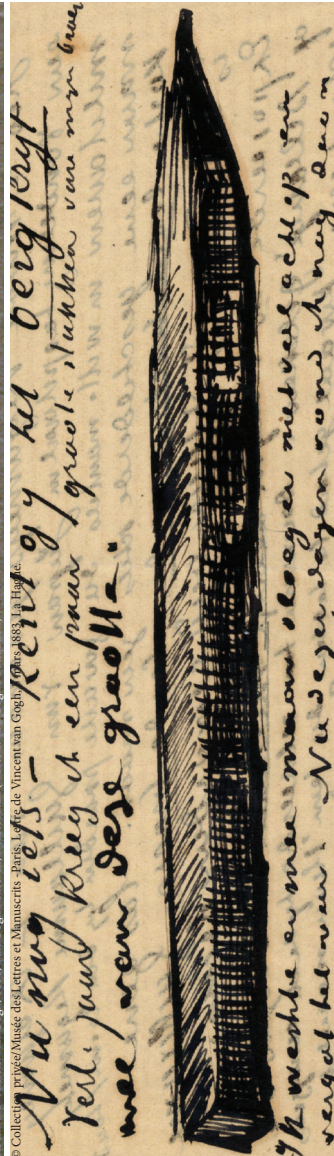 © Collection privée/Musée des Lettres et Manuscrits -Paris. Lettre de Vincent van Gogh, mars 1883, La Hague.
Nu nog iets – Kent gy het bergkryt
Verl. jaar kreeg ik een paar groote stukken van mijn broer
mee/van deze grootte.
Ik werkte er mee maar sloeg er niet veel acht op en
vergat het weer. Nu dezer dagen vond ik nog een